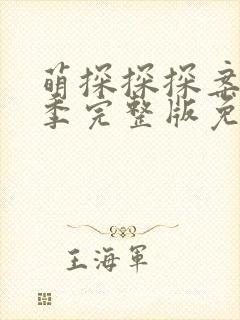 萌探探探案
季完整版免
王海軍